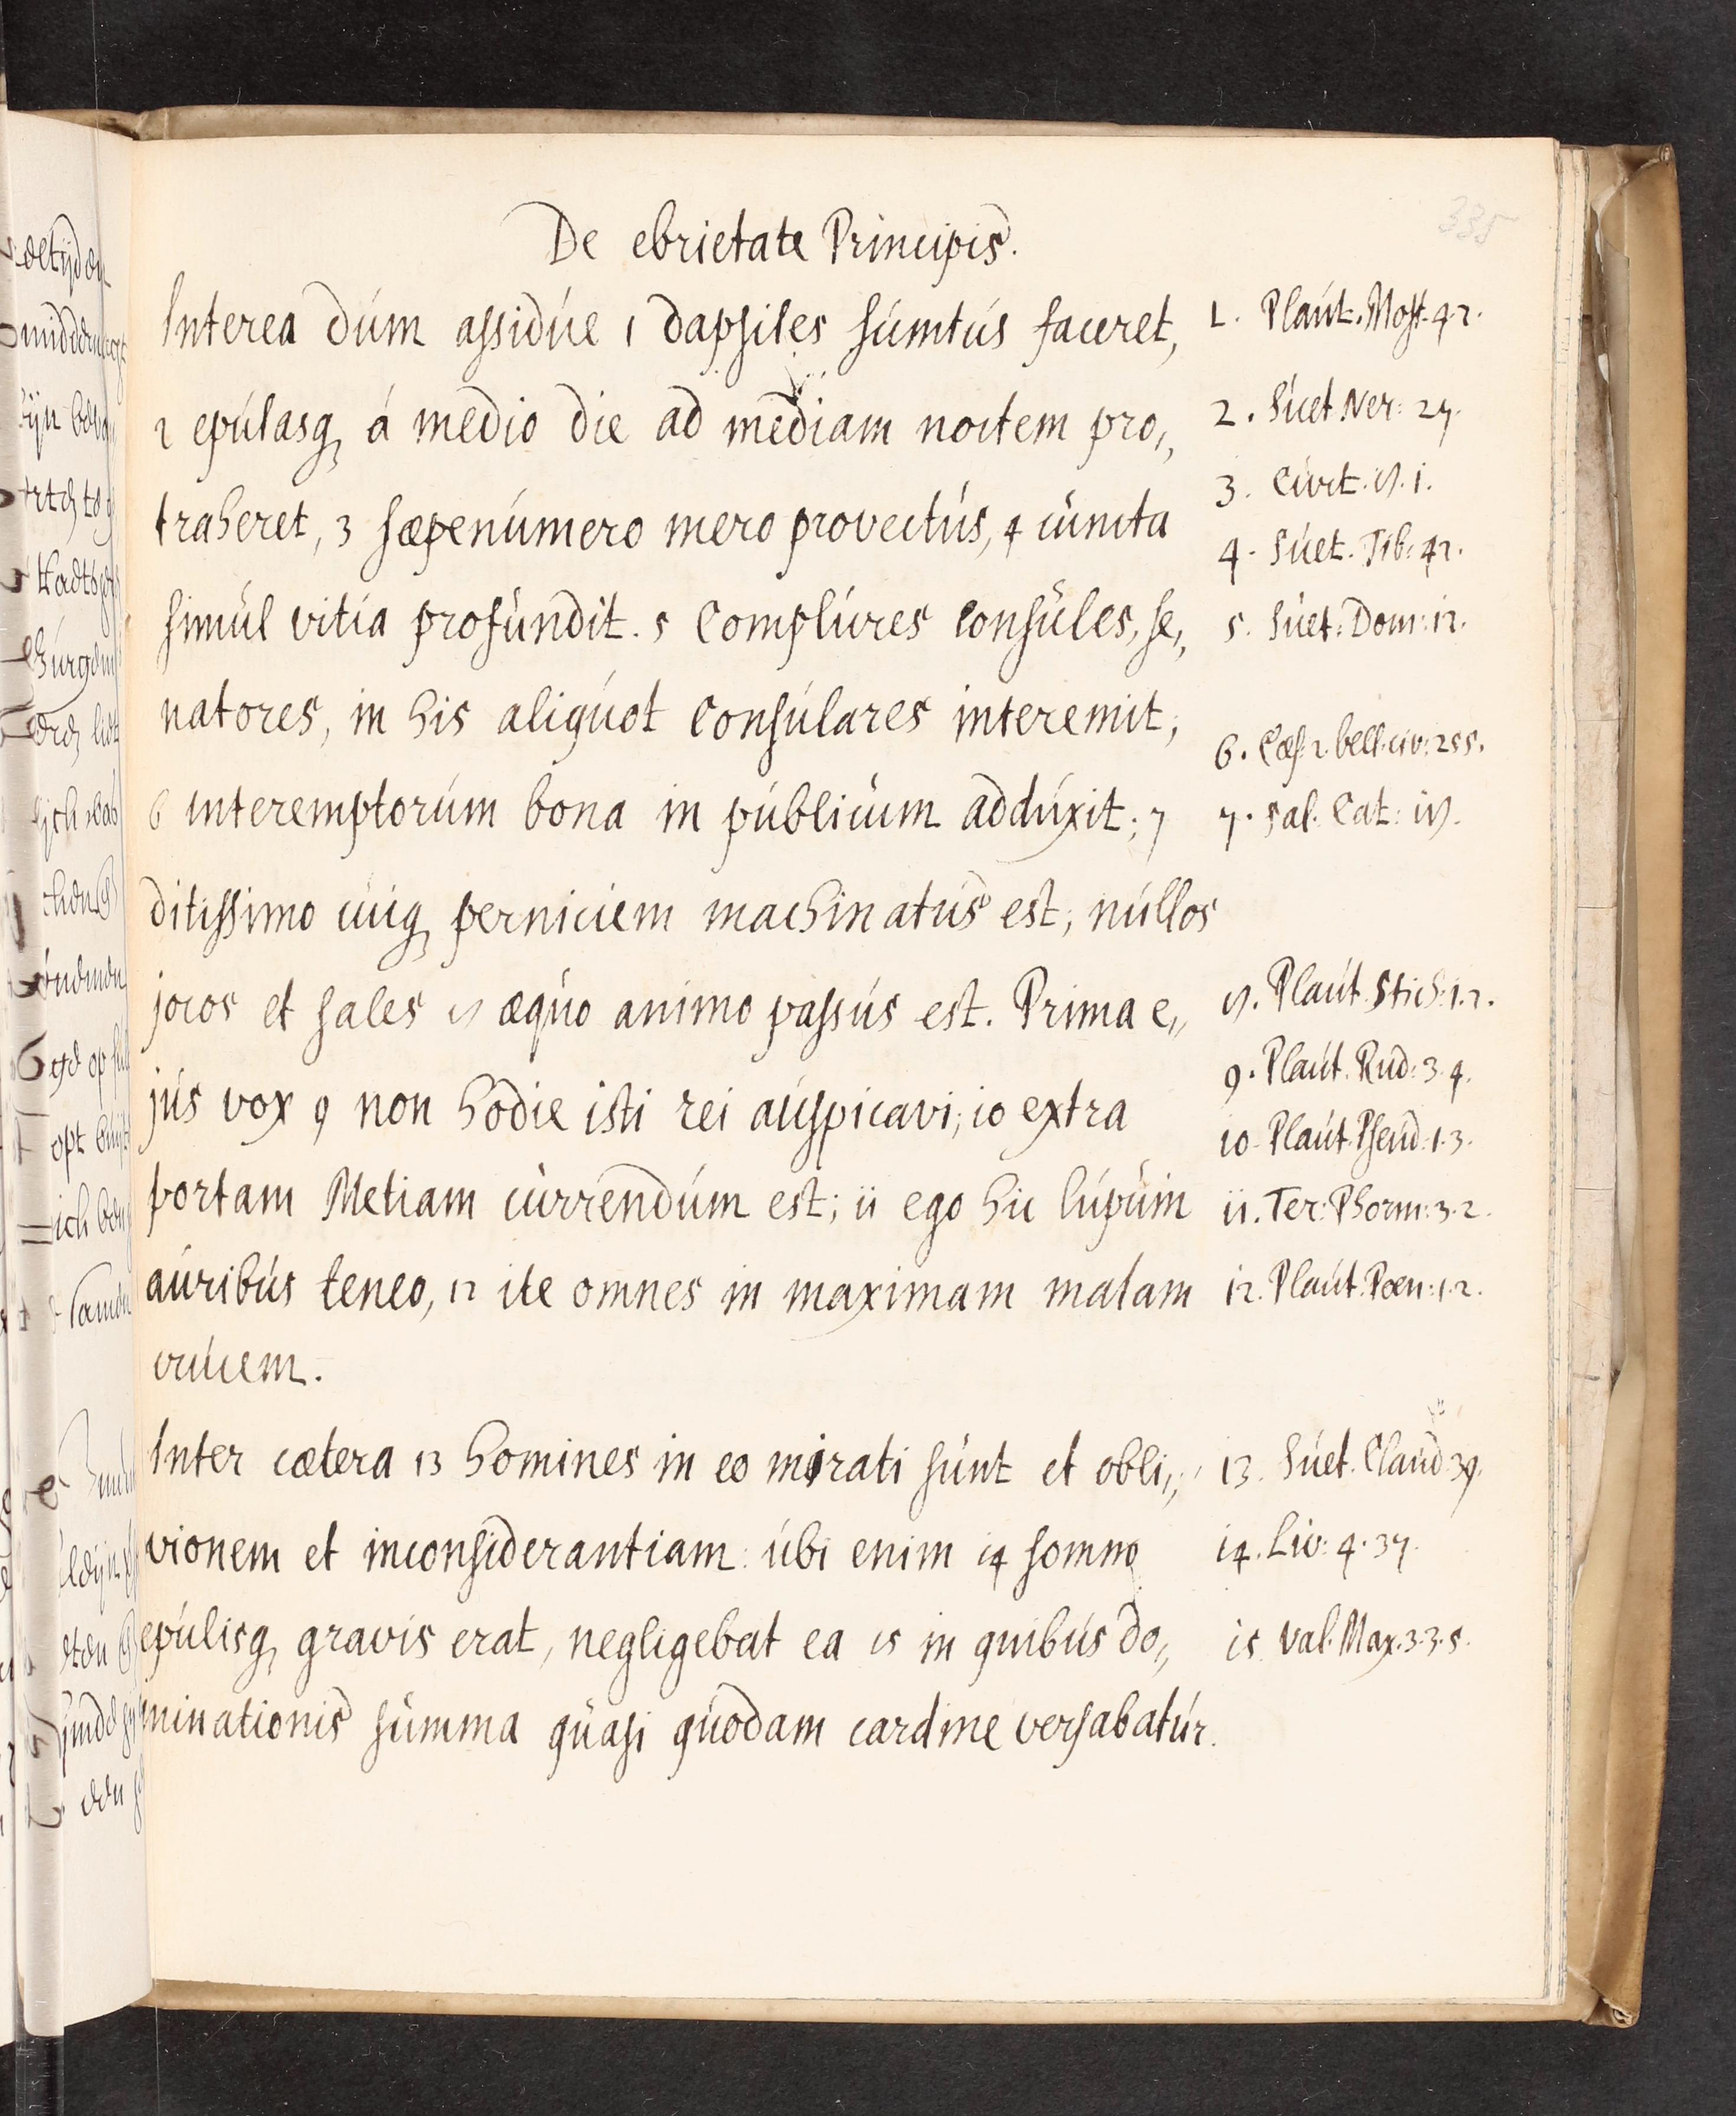 335
De ebrietate Principis.
Interea dúm assidúe 1 dapsiles súmtús faceret,
2 epúlasq, á medio die ad mediam noctem pro,,
traheret, 3 sæpenúmero mero provectús, 4 cúncta
simúl vitia profúndit. 5 Complúres Consúles, se,,
natores, in his aliqúot Consúlares interemit,
6 interemptorúm bona in públicúm addúxit; 7
ditissimo cúiq, perniciem machinatús est, núllos
jocos et sales 8 æqúo animo passús est. Prima e,,
jús vox 9 non hodie isti rei aúspicavi; 10 extra
portam Metiam cúrrendúm est; 11 ego hic lúpúm
aúribús teneo, 12 ite omnes in maximam malam
crúcem.
Inter cætera 13 homines in eo mirati súnt et obli,,
vionem et inconsiderantiam: úbi enim 14 somno
epúlisq, gravis erat, negligebat ea 15 in quibús do,,
minationis súmma qúasi qúodam cardine versabatúr.
1. Plaút. Most. 4.2.
2. Súet. Ner: 27.
3. Cúrt. 8. 1.
4. Súet. Tib: 42.
5. Súet. Dom: 12.
6. Cæs. 2. bell. civ: 255.
7. Sal. Cat: 18.
8. Plaút. Stich: 1.2.
9. Plaút. Rúd: 3.4.
10. Plaút. Pseúd: 1.3.
11. Ter: Phorm: 3.2.
12. Plaút. Pœn: 1.2.
13. Súet. Claúd 39.
14. Liv: 4. 37.
15. Val. Max. 3.3.5.